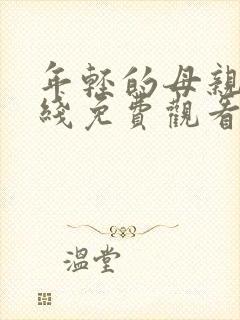 年轻的母親
綫免費觀看
溫堂